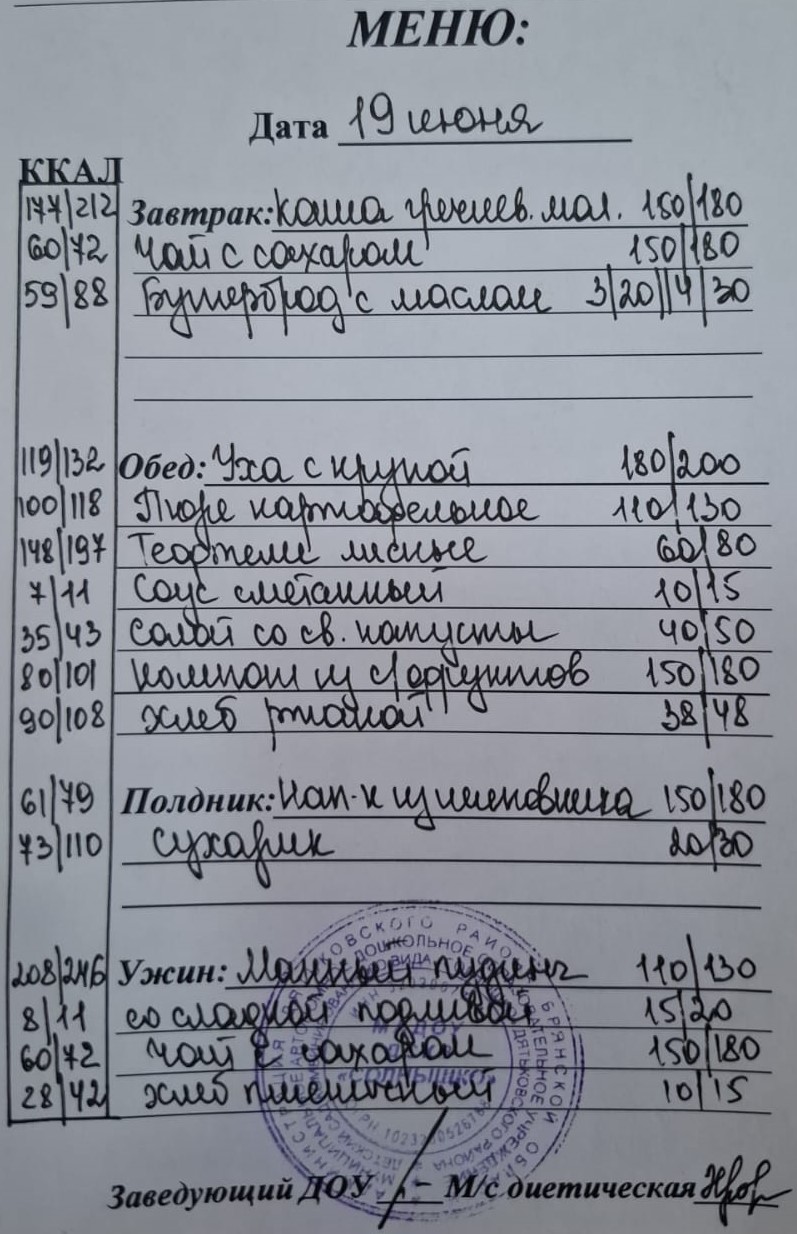 МЕНЮ:
Дата 19 июня
ККАЛ
177/212 Завтрак: Каша гречнев. мол. 150/180
60/72 Чай с сахаром 150/180
59/88 Бутерброд с маслом 3/20//4/30
119/132 Обед: Уха с крупой 180/200
100/118 Пюре картофельное 110/130
148/197 Тефтели мясные 60/80
7/11 Соус сметанный 10/15
35/43 Салат со св. капусты 40/50
80/101 Компот из с/фруктов 150/180
90/108 Хлеб ржаной 38/48
61/79 Полдник: Нап-к из шиповника 150/180
73/110 Сухарик 20/30
208/246 Ужин: Манный пудинг 110/130
8/11 со сладкой подливой 15/20
60/72 Чай с сахаром 150/180
28/42 Хлеб пшеничный 10/15
«СОЛНЫШКО»
Заведующий ДОУ М/с диетическая